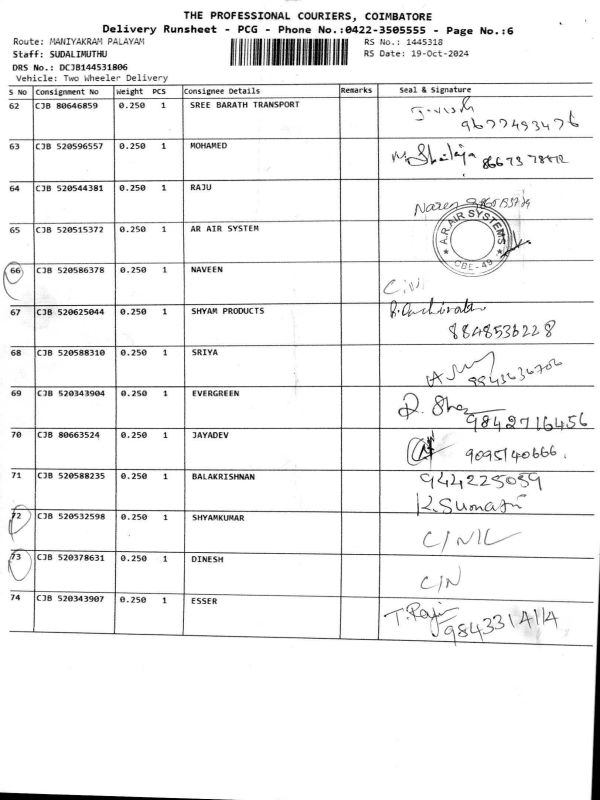 THE PROFESSIONAL COURIERS, COIMBATORE
Delivery Runsheet - PCG - Phone No.:0422-3505555 - Page No.:6
Route: MANIYAKRAM PALAYAM RS No.: 1445318
Staff: SUDALIMUTHU RS Date: 19-Oct-2024
DRS No.: DCJB144531806
Vehicle: Two Wheeler Delivery
S No Consignment No Weight PCS Consignee Details Remarks Seal & Signature
62 CJB 80646859 0.250 1 SREE BARATH TRANSPORT
9677493476
63 CJB 520596557 0.250 1 MOHAMED
M. Shailaja
64 CJB 520544381 0.250 1 RAJU
Naren
65 CJB 520515372 0.250 1 AR AIR SYSTEM
A.R.AIR SYSTEMS
★ CBE-49 ★
66 CJB 520586378 0.250 1 NAVEEN
C/N
67 CJB 520625044 0.250 1 SHYAM PRODUCTS
8848536228
68 CJB 520588310 0.250 1 SRIYA
9943636706
69 CJB 520343904 0.250 1 EVERGREEN
9842716456
70 CJB 80663524 0.250 1 JAYADEV
9095140666.
71 CJB 520588235 0.250 1 BALAKRISHNAN
944225059
K. Sumathi
72 CJB 520532598 0.250 1 SHYAMKUMAR
C/N/L
73 CJB 520378631 0.250 1 DINESH
C/N
74 CJB 520343907 0.250 1 ESSER
T. Raji
9843314114